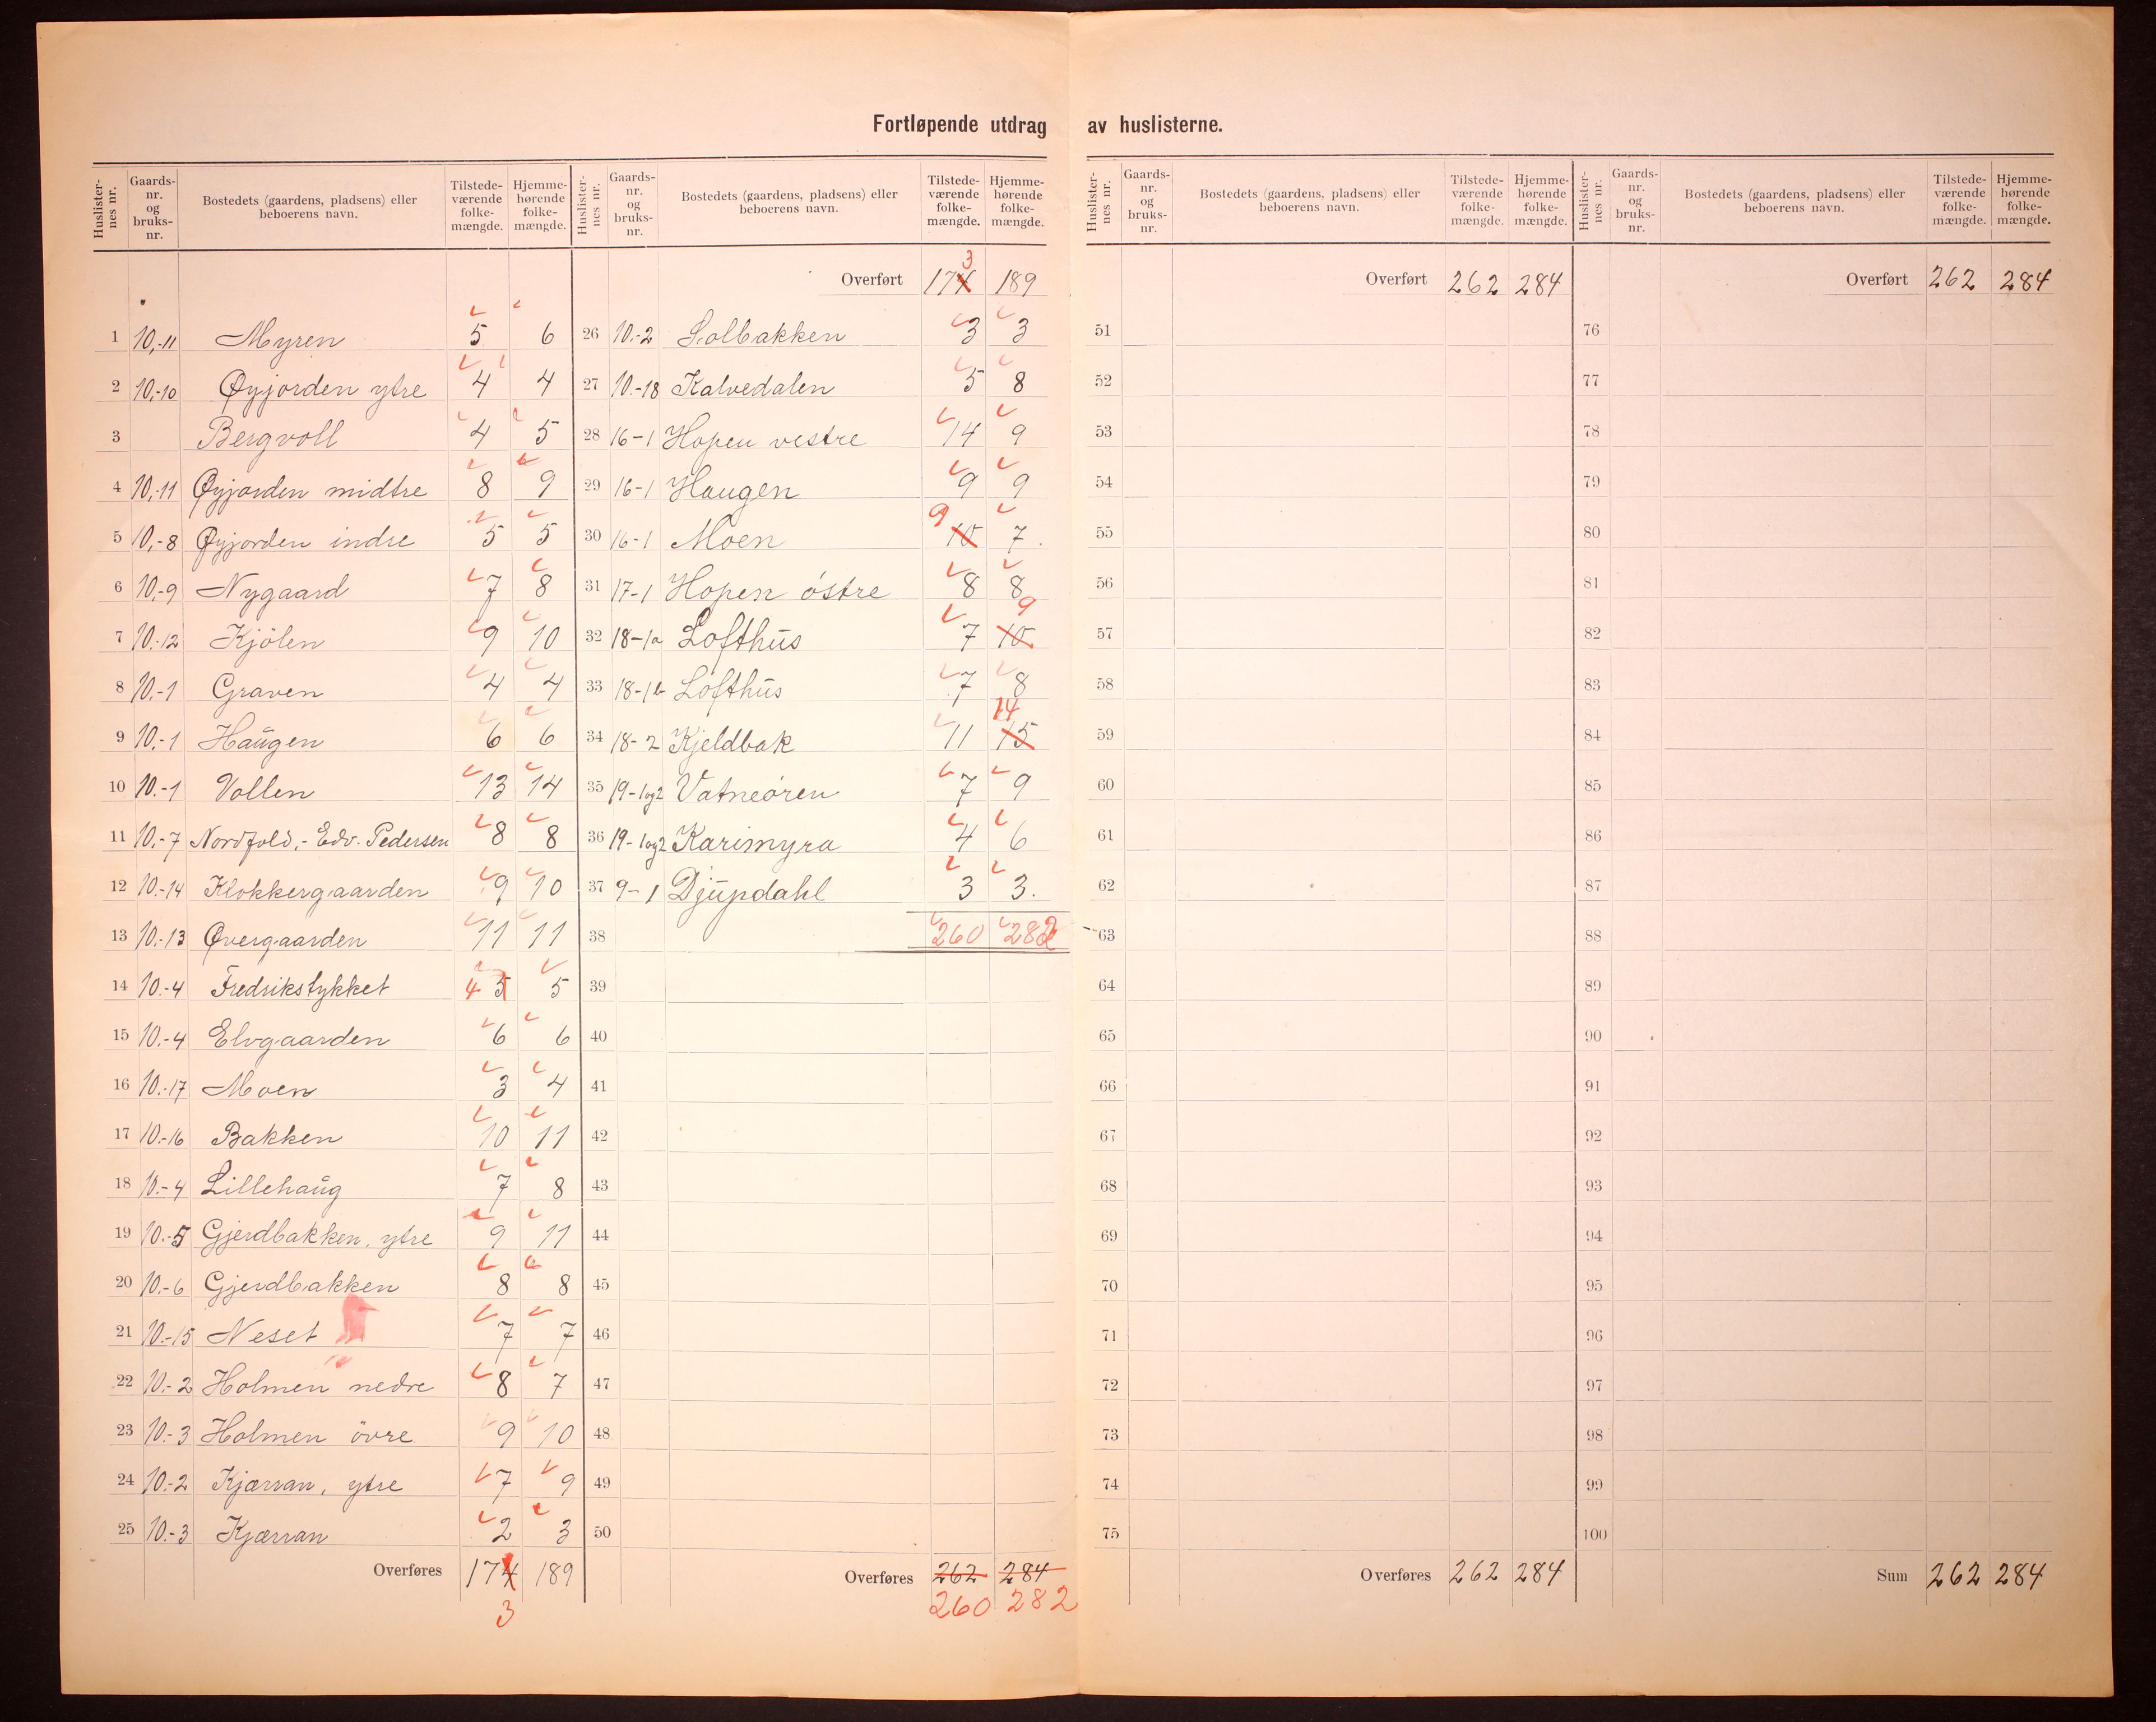 Fortløpende utdrag av huslisterne.
Huslisternes nr. Gaardsnr. og bruksnr. Bostedets (gaardens, pladsens) eller beboerens navn. Tilstedeværende folkemængde. Hjemmehørende folkemængde.
1 10,-11 Myren 5 6
2 10,-10 Øyjorden ytre 4 4
3 Bergvoll 4 5
4 10,-11 Øyjorden midtre 8 9
5 10,-8 Øyjorden indre 5 5
6 10,-9 Nygaard 7 8
7 10.-12 Kjölen 9 10
8 10.-1 Graven 4 4
9 10.-1 Haugen 6 6
10 10.-1 Vollen 13 14
11 10.-7 Nordfold,- Edv. Pedersen 8 8
12 10.-14 Klokkergaarden 9 10
13 10.-13 Øvergaarden 11 11
14 10.-4 Fredrikstykket 4 5 5
15 10.-4 Elvgaarden 6 6
16 10.-17 Moen 3 4
17 10.-16 Bakken 10 11
18 10.-4 Lillehaug 7 8
19 10.-5 Gjerdbakken, ytre 9 11
20 10.-6 Gjerdbakken 8 8
21 10.-15 Neset 7 7
22 10.-2 Holmen nedre 8 7
23 10.-3 Holmen övre 9 10
24 10.-2 Kjærran, ytre 7 9
25 10.-3 Kjærran 2 3
Overføres 174 189
3
Huslisternes nr. Gaardsnr. og bruksnr. Bostedets (gaardens, pladsens) eller beboerens navn. Tilstedeværende folkemængde. Hjemmehørende folkemængde.
3
Overført 174 189
26 10.-2 Solbakken 3 3
27 10.-18 Kalvedalen 5 8
28 16-1 Hopen vestre 14 9
29 16-1 Haugen 9 9
30 16-1 Moen 9 10 7.
31 17-1 Hopen östre 8 8
32 18-1a Lofthus 7 10 9
33 18-1b Lofthus 7 8
34 18-2 Kjeldbak 11 15 14
35 19-1og2 Vatneören 7 9
36 19-1og2 Karimyra 4 6
37 9-1 Djupdahl 3 3.
38 260 282
39
40
41
42
43
44
45
46
47
48
49
50
Overføres 262 284
260 282
Huslisternes nr. Gaardsnr. og bruksnr. Bostedets (gaardens, pladsens) eller beboerens navn. Tilstedeværende folkemængde. Hjemmehørende folkemængde.
Overført 262 284
51
52
53
54
55
56
57
58
59
60
61
62
63
64
65
66
67
68
69
70
71
72
73
74
75
Overføres 262 284
Huslisternes nr. Gaardsnr. og bruksnr. Bostedets (gaardens, pladsens) eller beboerens navn. Tilstedeværende folkemængde. Hjemmehørende folkemængde.
Overført 262 284
76
77
78
79
80
81
82
83
84
85
86
87
88
89
90
91
92
93
94
95
96
97
98
99
100
Sum 262 284